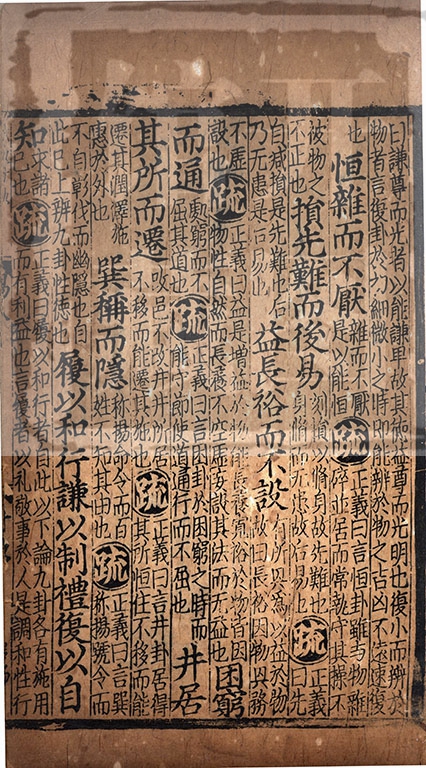 曰謙尊而光者以能謙卑故其德益尊而光明也復小而辨於
物者言復卦於初細微小之時即能辨於物之吉凶不遠速復
也恒雜而不厭雜而不厭是以能恒疏正義曰言恒卦雖與物雜碎並居而常執守其操不
被物之不正也損先難而後易刻損以脩身故先難也身脩而无患故後易也疏正義曰先
自減損是先難也後乃无患是後易也益長裕而不設有所興為以益於物故曰長裕因物興務
不虛設也疏正義曰益是增益於物能長養寬裕於物皆因物性自然而長養不空虛妄設其法而无益也困窮
而通處窮而不屈其道也疏正義曰言困卦於困窮之時而能守節使道通行而不屈也井居
其所而遷改邑不改井井所居不移而能遷其施也疏正義曰言井卦居得其所恒住不移而能
遷其潤澤施惠於外也巽稱而隱稱揚命令而百姓不知其由也疏正義曰言巽稱揚號令而
不自彰伐而幽隱也自此已上辨九卦性德也履以和行謙以制禮復以自
知求諸己也疏正義曰履以和行者自此以下論九卦各有施用而有利益也言履者以礼敬事於人是調和性行